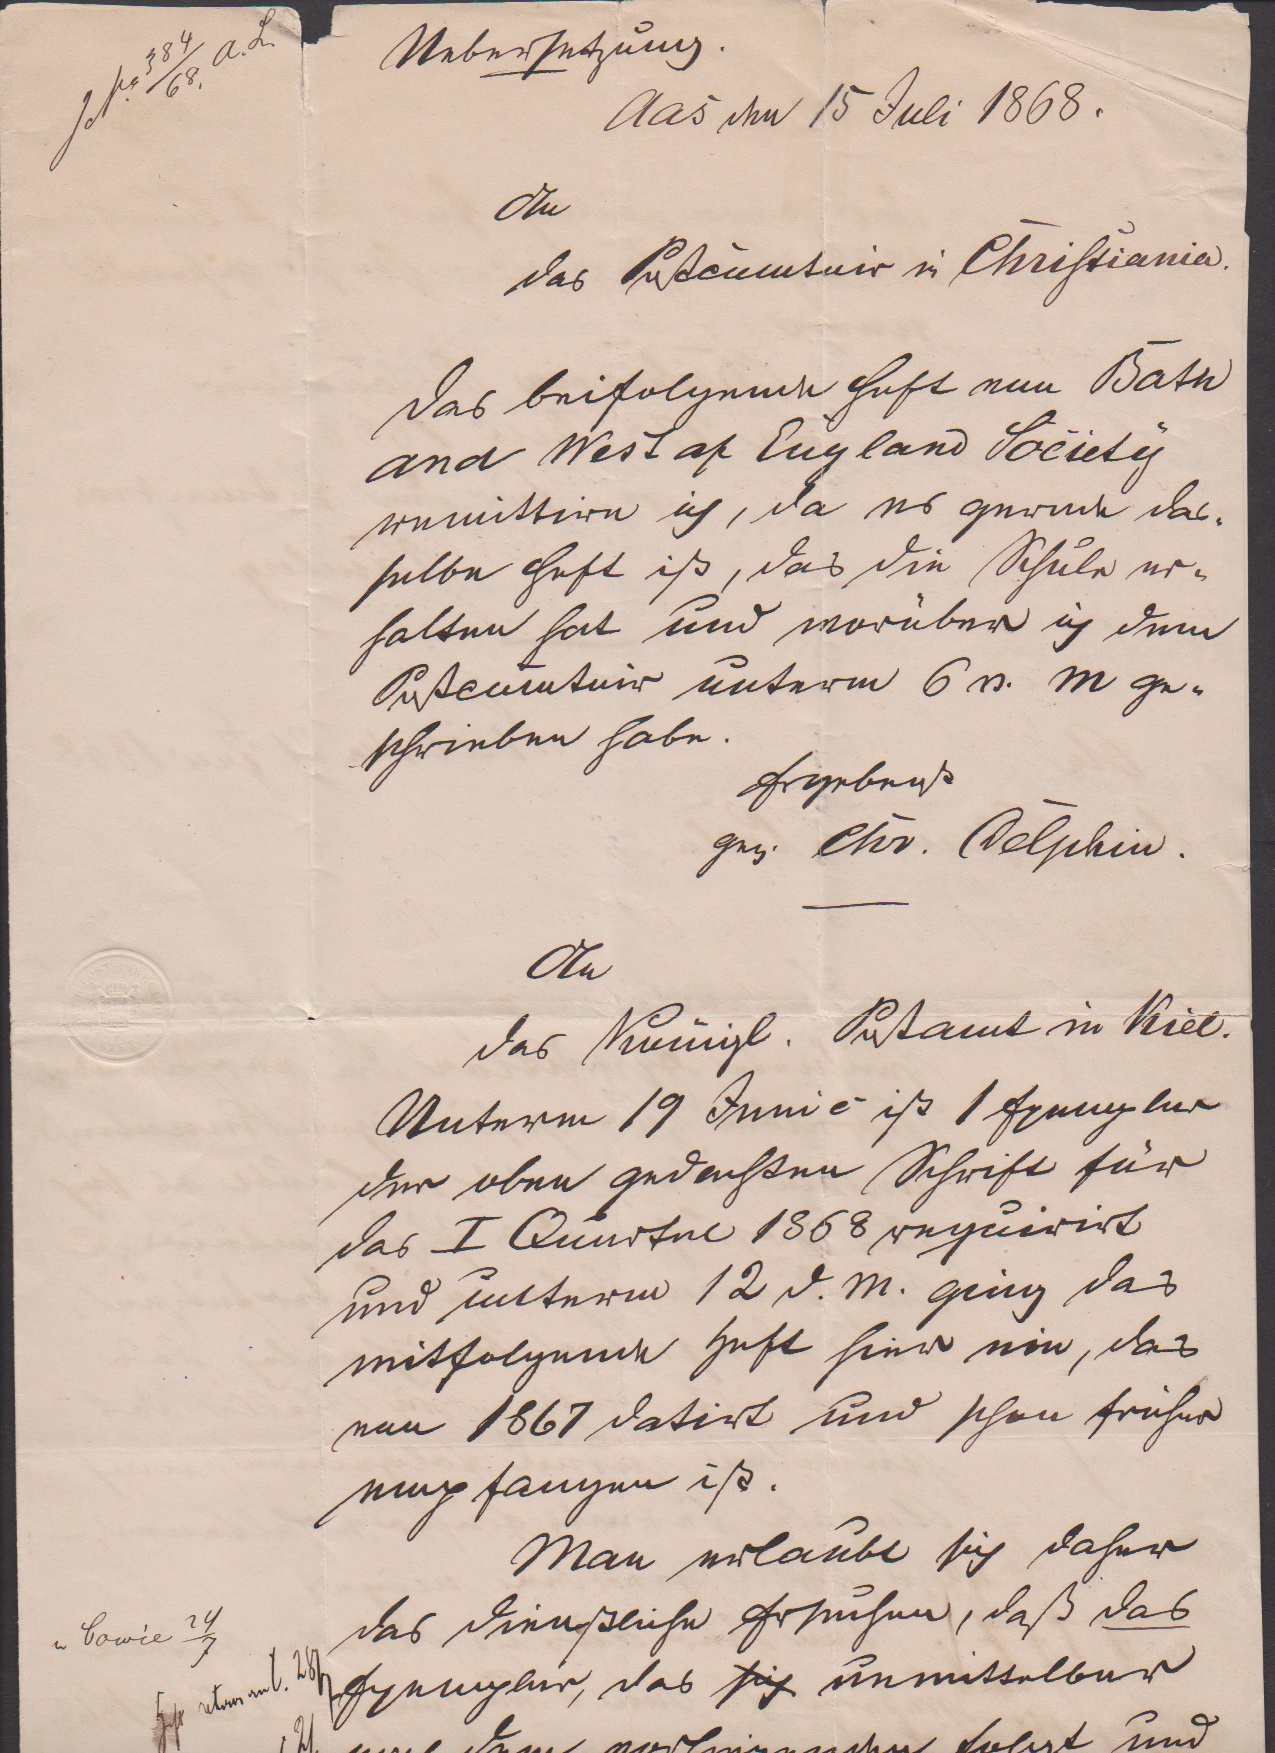 384/68. A. L.
Uebersetzung.
Aas den 15 Juli 1868.
An
das Postcomtoir in Christiania.
Das beifolgende Heft von Bath
and West of England Society
remittire ich, da es gerade das-
selbe Heft ist, das die Schule er-
halten hat und worüber ich dem
Postcomtoir unterm 6 d. M ge-
schrieben habe.
Ergebenst
gez. Chr. Delphin.
An
das Königl. Postamt in Kiel.
Unterm 19 Juni c ist 1 Exemplar
der oben gedachten Schrift für
das I Quartal 1868 requirirt
und unterm 12 d. M. ging das
mitfolgende Heft hier ein, das
von 1867 datirt und schon früher
empfangen ist.
Man erlaubt sich daher
das dienstliche Ersuchen, daß das
Exemplar, das sich unmittelbar
folgt und
Cowie 24/7